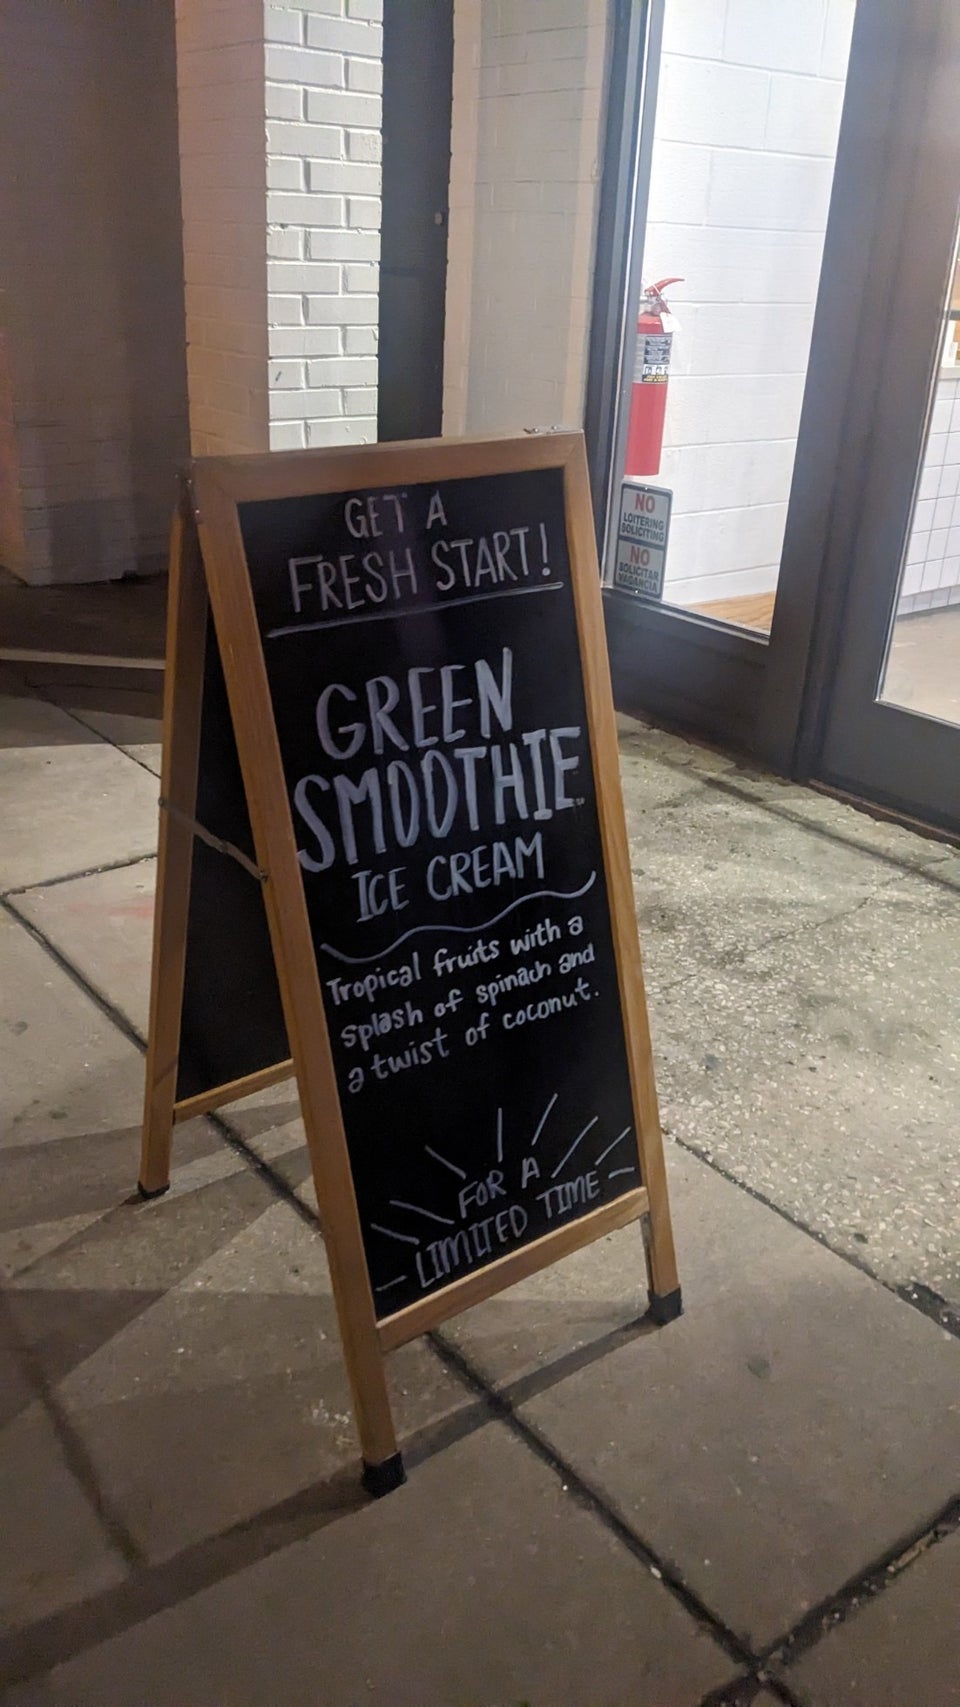 GET A
FRESH START!
GREEN
SMOOTHIE
ICE CREAM
Tropical fruits with a
splash of spinach and
a twist of coconut.
FOR A
LIMITED TIME
NO
LOITERING
SOLICITING
NO
SOLICITAR
VAGANCIA